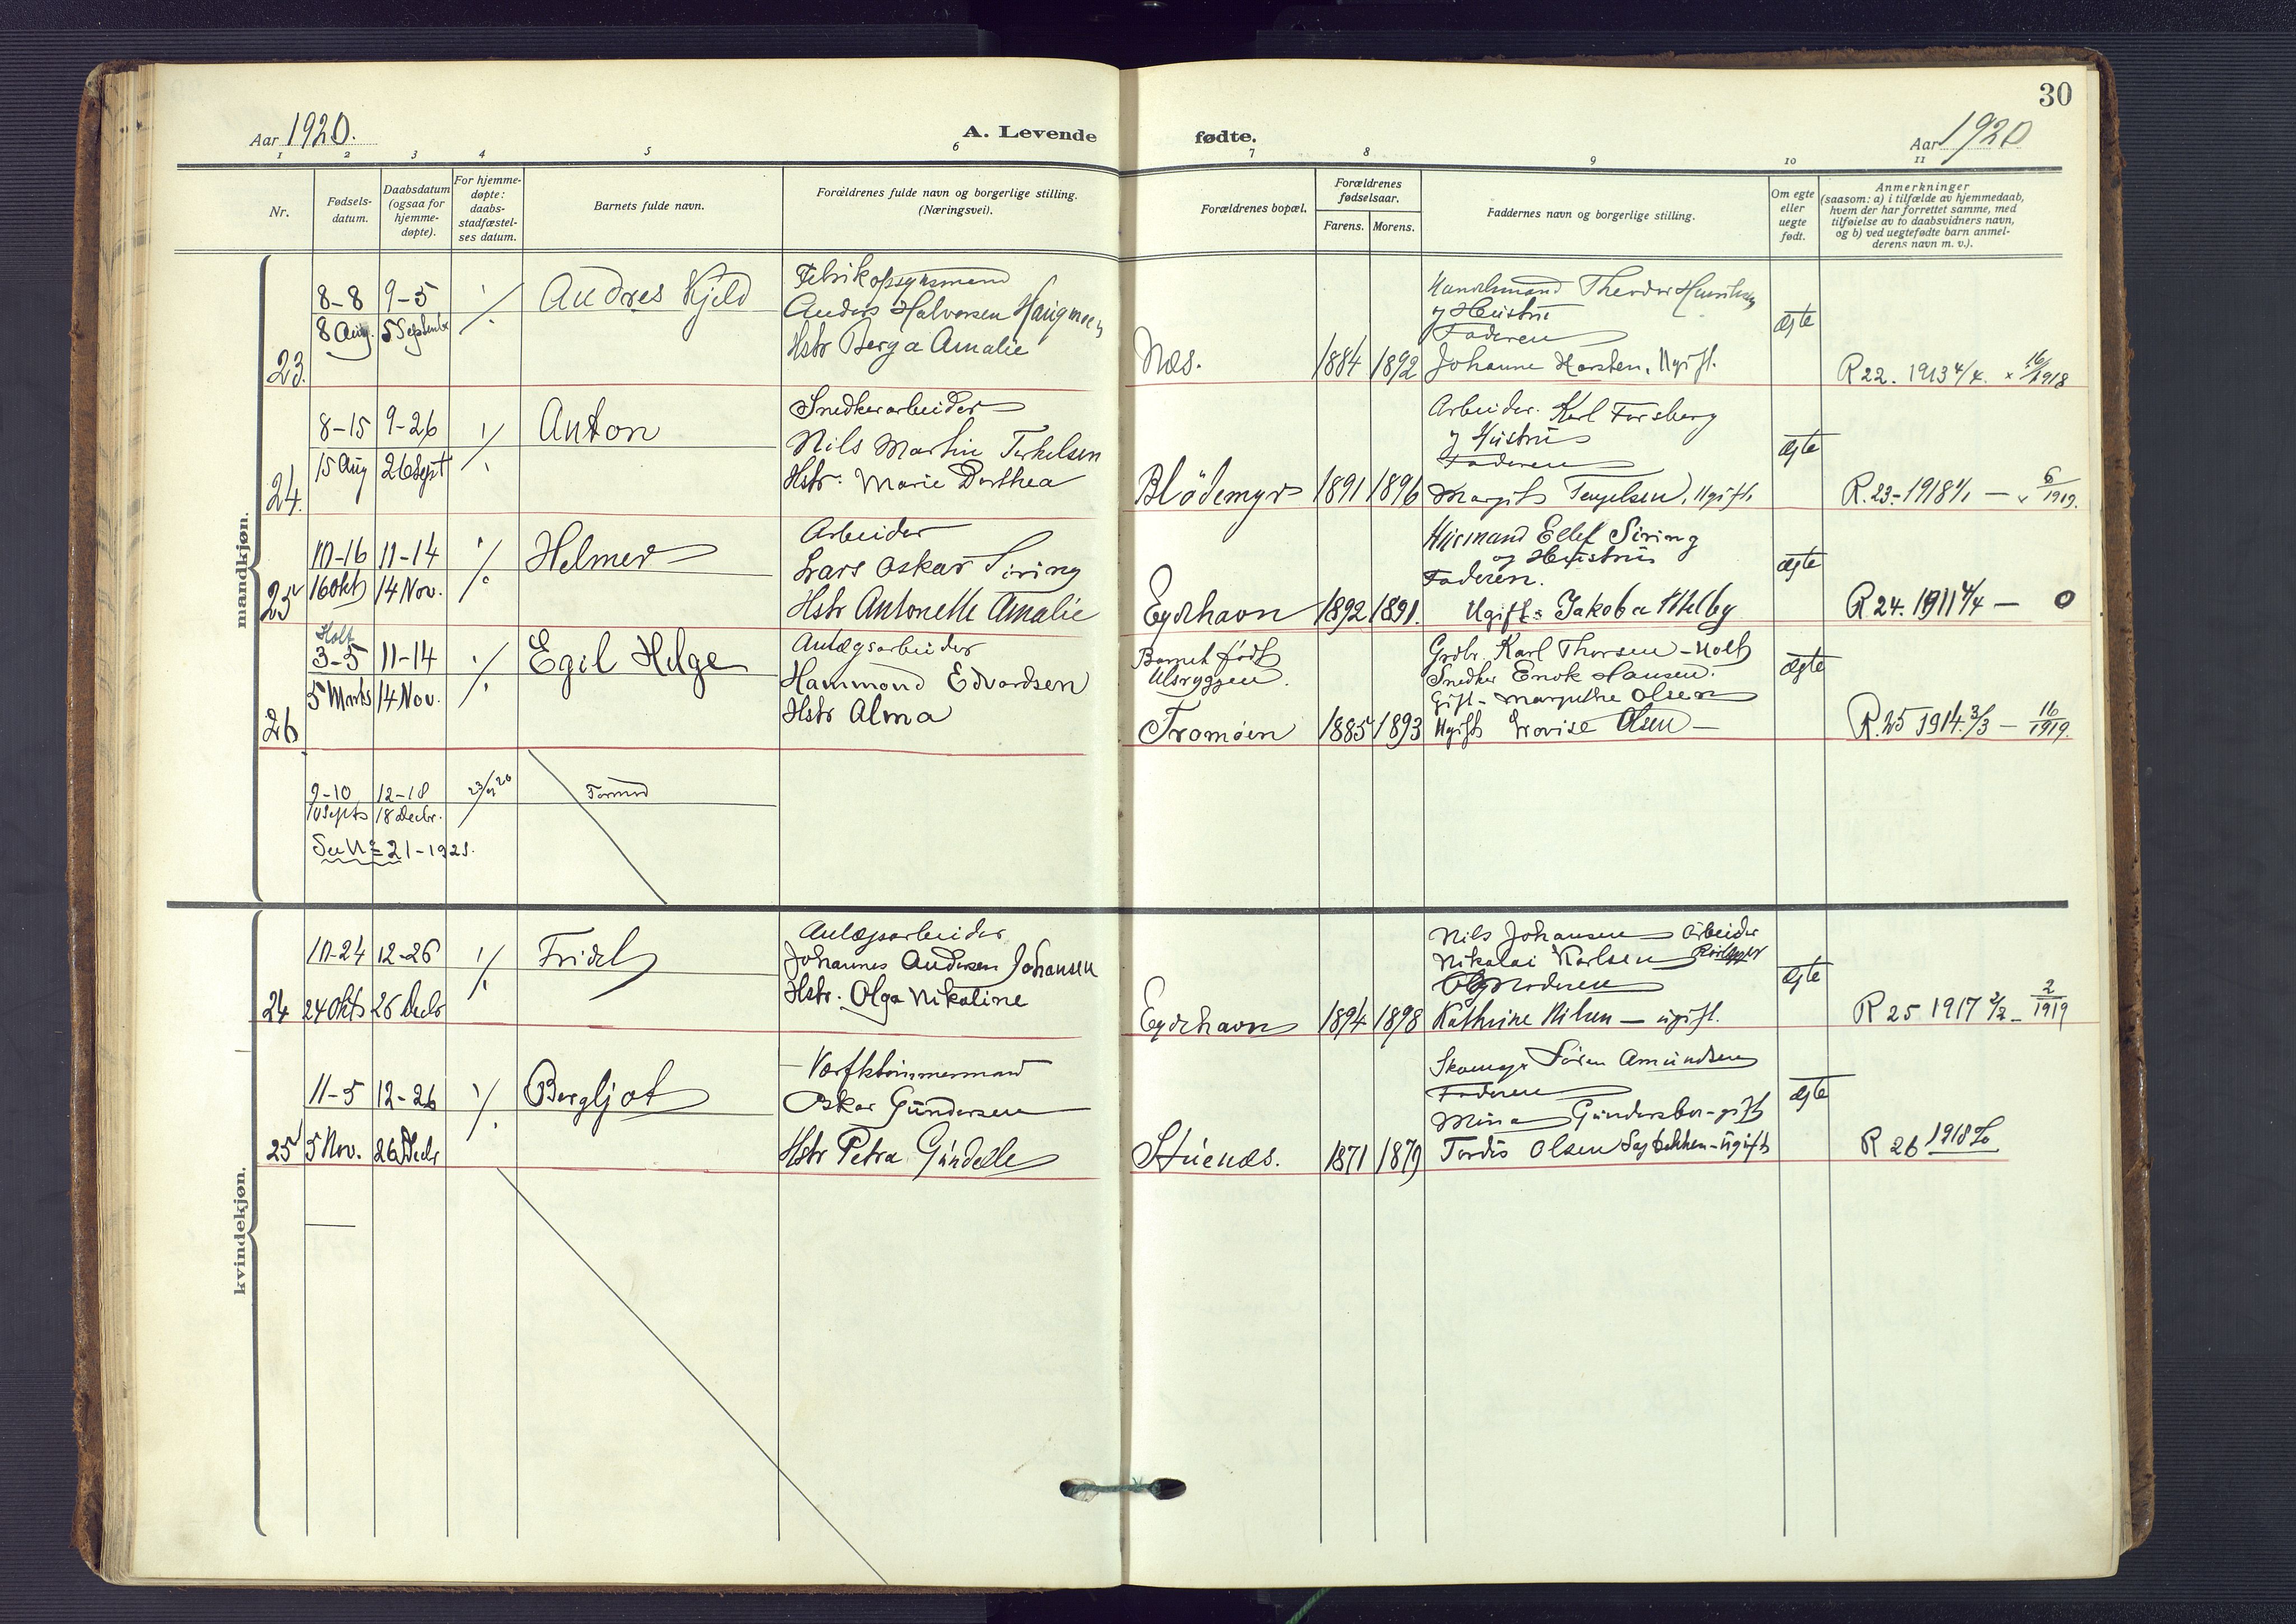 30
Aar 1920.
A. Levende
fødte.
Aar 1920
1 2 3 4 5 6 7 8 9 10 11
Nr.
Fødsels-
datum.
Daabsdatum
(ogsaa for
hjemme-
døpte).
For hjemme-
døpte:
daabs-
stadfæstel-
ses datum.
Barnets fulde navn.
Forældrenes fulde navn og borgerlige stilling.
(Næringsvei).
Forældrenes bopæl.
Forældrenes
fødselsaar.
Farens. Morens.
Faddernes navn og borgerlige stilling.
Om egte
eller
uegte
født.
Anmerkninger
(saasom: a) i tilfælde av hjemmedaab,
hvem der har forrettet samme, med
tilføielse av to daabsvidners navn,
og b) ved uegtefødte barn anmel-
derens navn m. v.).
mandkjøn.
23.
8-8 9-5
8 Aug. 5 Septembr
Andres Kjeld
Anders Halvorsen
Hstr Berga Amalie
Næs.
1884 1892
Handelsmand Theodor Henriksen
og Hustru
Faderen
Johanne Karsten, Ugift.
ægte
R 22. 1913 4/4. × 16/1918
24.
8-15 9-26
15 Aug 26 Sept
Anton
Snedkerarbeider
Nils Martin Terkelsen
Hstr: Marie Dorthea
Blödemyr
1891 1896
Arbeider. Karl Forsberg
og Hustru
Faderen
Margit Tengelsen, Ugift.
ægte
R. 23-1918 1/1 — × 6/1919.
25
10-16 11-14
16 Okt 14 Nov.
Helmer
Arbeider
Lars Oskar Siring
Hstr Antonette Amalie
Eydehavn
1892 1891.
Husmand Ellef Siring
og Hustru
Faderen.
Ugift: Jakoba
ægte
R 24. 1911 4/4 — 0
26
Holt
3-5 11-14
5 Marts 14 Nov.
Egil Helge
Anlægsarbeider
Hammond Edvardsen
Hstr Alma
Barnet født
Ulsryggen.
Tromøen
1885 1893
Grdbr. Karl Thorsen - Holt
Snedker Enok Hansen.
Gift - Margrethe Olsen
Ugift Lovise Olsen —
ægte
R. 25 1914. 3/3 — 16/1919.
9-10 12-18
10 Septs 18 Decbr.
Se No 21-1921.
kvindekjøn.
24
10-24 12-26
24 Okt 26 Decbr
Fridel
Anlægsarbeider
Johannes Andersen Johansen
Hstr. Olga Nikoline
Eydehavn
1894 1898
Nils Johansen Arbeider
Nikolai Karlsen
Kathrine Nilsen — ugift.
ægte
R 25 1917 2/2 — 2/1919
25
11-5 12-26
5 Nov. 26 Decbr
Bergljot
Værftstømmermand
Oskar Gundersen
Hstr Petra Gundelle
Stuenæs.
1871 1879
Skomgr Søren Amundsen
Faderen
Mina Gundersen - gift
Tordis Olsen Sagbakken - Ugift
ægte
R 26